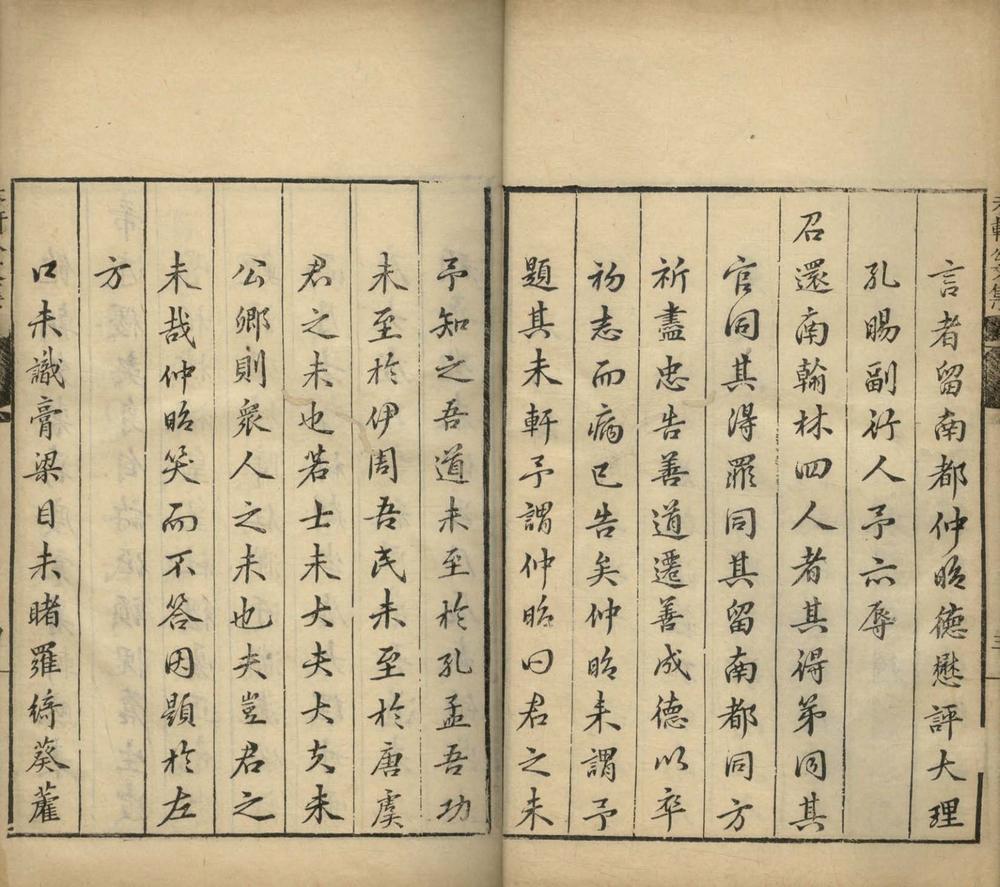 言者留南都仲昭德懋評大理
孔賜副行人予亦辱
召還南翰林四人者其得第同其
官同其得罪同其留南都同方
祈盡忠告善道遷善成德以卒
初志而病已告矣仲昭来謂予
題其未軒予謂仲昭曰君之未
予知之吾道未至於孔孟吾功
未至於伊周吾民未至於唐虞
君之未也若士未大夫大夫未
公卿則衆人之未也夫豈君之
未哉仲昭笑而不答因題於左
方
口未識膏粱目未睹羅綺葵藿
未軒公文集